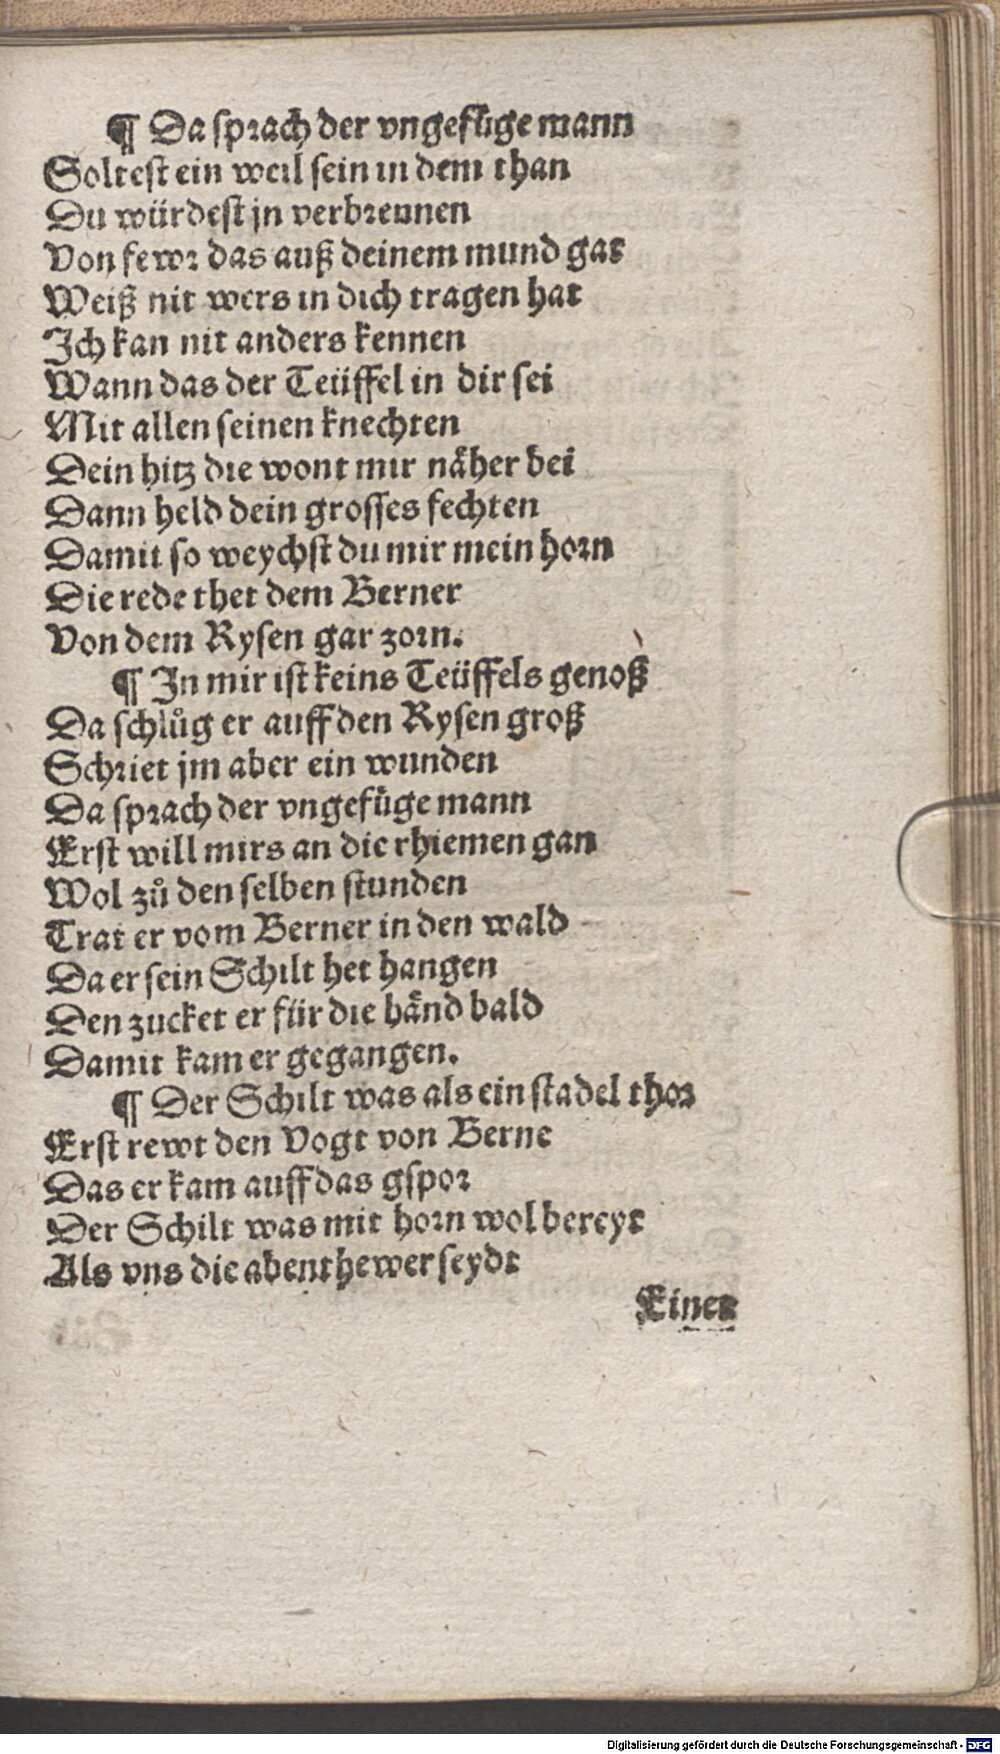 ¶ Da sprach der vngefüge mann
Soltest ein weil sein in dem than
Du würdest jn verbrennen
Von fewr das auß deinem mund gat
Weiß nit wers in dich tragen hat
Ich kan nit anders kennen
Wann das der Teüffel in dir sei
Mit allen seinen knechten
Dein hitz die wont mir näher bei
Dann held dein grosses fechten
Damit so weychst du mir mein horn
Die rede thet dem Berner
Von dem Rysen gar zorn.
¶ In mir ist keins Teüffels genoß
Da schlůg er auff den Rysen groß
Schriet jm aber ein wunden
Da sprach der vngefüge mann
Erst will mirs an die rhiemen gan
Wol zů den selben stunden
Trat er vom Berner in den wald
Da er sein Schilt het hangen
Den zucket er für die händ bald
Damit kam er gegangen.
¶ Der Schilt was als ein stadel thor
Erst rewt den Vogt von Berne
Das er kam auff das gspor
Der Schilt was mit horn wol bereyt
Als vns die abenthewer seydt
Einer
Digitalisierung gefördert durch die Deutsche Forschungsgemeinschaft - DFG